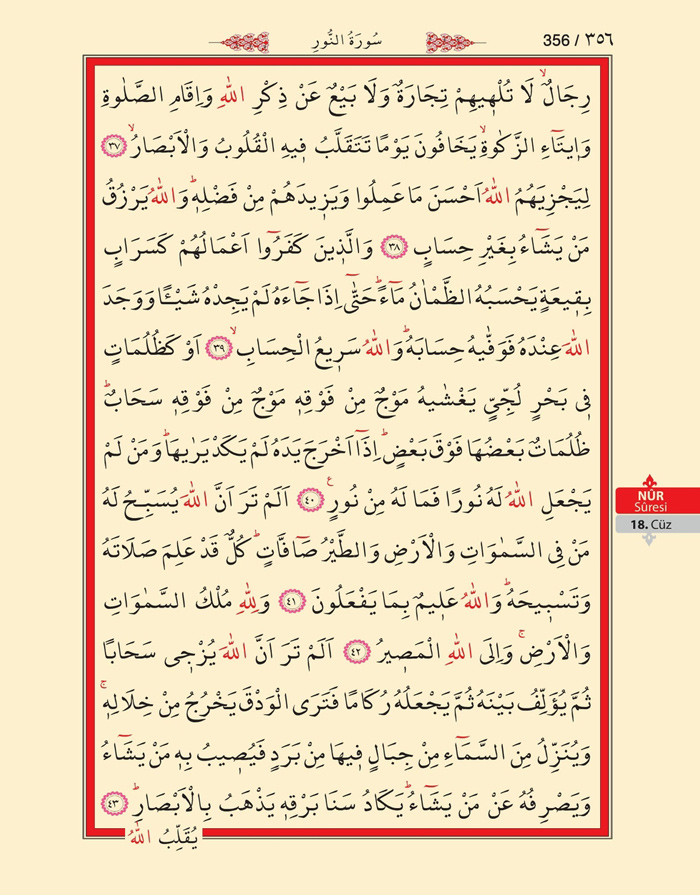 سُورَةُ النُّورِ
356 / ٣٥٦
رِجَالٌۙ لَا تُلْهٖيهِمْ تِجَارَةٌ وَلَا بَيْعٌ عَنْ ذِكْرِ اللّٰهِ وَاِقَامِ الصَّلٰوةِ
وَاٖيتَٓاءِ الزَّكٰوةِۙ يَخَافُونَ يَوْمًا تَتَقَلَّبُ فٖيهِ الْقُلُوبُ وَالْاَبْصَارُۙ ﴿٣٧﴾
لِيَجْزِيَهُمُ اللّٰهُ اَحْسَنَ مَا عَمِلُوا وَيَزٖيدَهُمْ مِنْ فَضْلِهٖؕ وَاللّٰهُ يَرْزُقُ
مَنْ يَشَٓاءُ بِغَيْرِ حِسَابٍ ﴿٣٨﴾ وَالَّذٖينَ كَفَرُٓوا اَعْمَالُهُمْ كَسَرَابٍ
بِقٖيعَةٍ يَحْسَبُهُ الظَّمْاٰنُ مَٓاءًؕ حَتّٰٓى اِذَا جَٓاءَهُ لَمْ يَجِدْهُ شَيْـًٔا وَوَجَدَ
اللّٰهَ عِنْدَهُ فَوَفّٰيهُ حِسَابَهُؕ وَاللّٰهُ سَرٖيعُ الْحِسَابِۙ ﴿٣٩﴾ اَوْ كَظُلُمَاتٍ
فٖى بَحْرٍ لُجِّيٍّ يَغْشٰيهُ مَوْجٌ مِنْ فَوْقِهٖ مَوْجٌ مِنْ فَوْقِهٖ سَحَابٌؕ
ظُلُمَاتٌ بَعْضُهَا فَوْقَ بَعْضٍؕ اِذَٓا اَخْرَجَ يَدَهُ لَمْ يَكَدْ يَرٰيهَاؕ وَمَنْ لَمْ
يَجْعَلِ اللّٰهُ لَهُ نُورًا فَمَا لَهُ مِنْ نُورٍࣖ ﴿٤٠﴾ اَلَمْ تَرَ اَنَّ اللّٰهَ يُسَبِّحُ لَهُ
مَنْ فِى السَّمٰوَاتِ وَالْاَرْضِ وَالطَّيْرُ صَٓافَّاتٍؕ كُلٌّ قَدْ عَلِمَ صَلَاتَهُ
وَتَسْبٖيحَهُؕ وَاللّٰهُ عَلٖيمٌ بِمَا يَفْعَلُونَ ﴿٤١﴾ وَلِلّٰهِ مُلْكُ السَّمٰوَاتِ
وَالْاَرْضِۚ وَاِلَى اللّٰهِ الْمَصٖيرُ ﴿٤٢﴾ اَلَمْ تَرَ اَنَّ اللّٰهَ يُزْجٖى سَحَابًا
ثُمَّ يُؤَلِّفُ بَيْنَهُ ثُمَّ يَجْعَلُهُ رُكَامًا فَتَرَى الْوَدْقَ يَخْرُجُ مِنْ خِلَالِهٖۚ
وَيُنَزِّلُ مِنَ السَّمَٓاءِ مِنْ جِبَالٍ فٖيهَا مِنْ بَرَدٍ فَيُصٖيبُ بِهٖ مَنْ يَشَٓاءُ
وَيَصْرِفُهُ عَنْ مَنْ يَشَٓاءُؕ يَكَادُ سَنَا بَرْقِهٖ يَذْهَبُ بِالْاَبْصَارِؕ ﴿٤٣﴾
يُقَلِّبُ اللّٰهُ
NÛR
Sûresi
18. Cüz